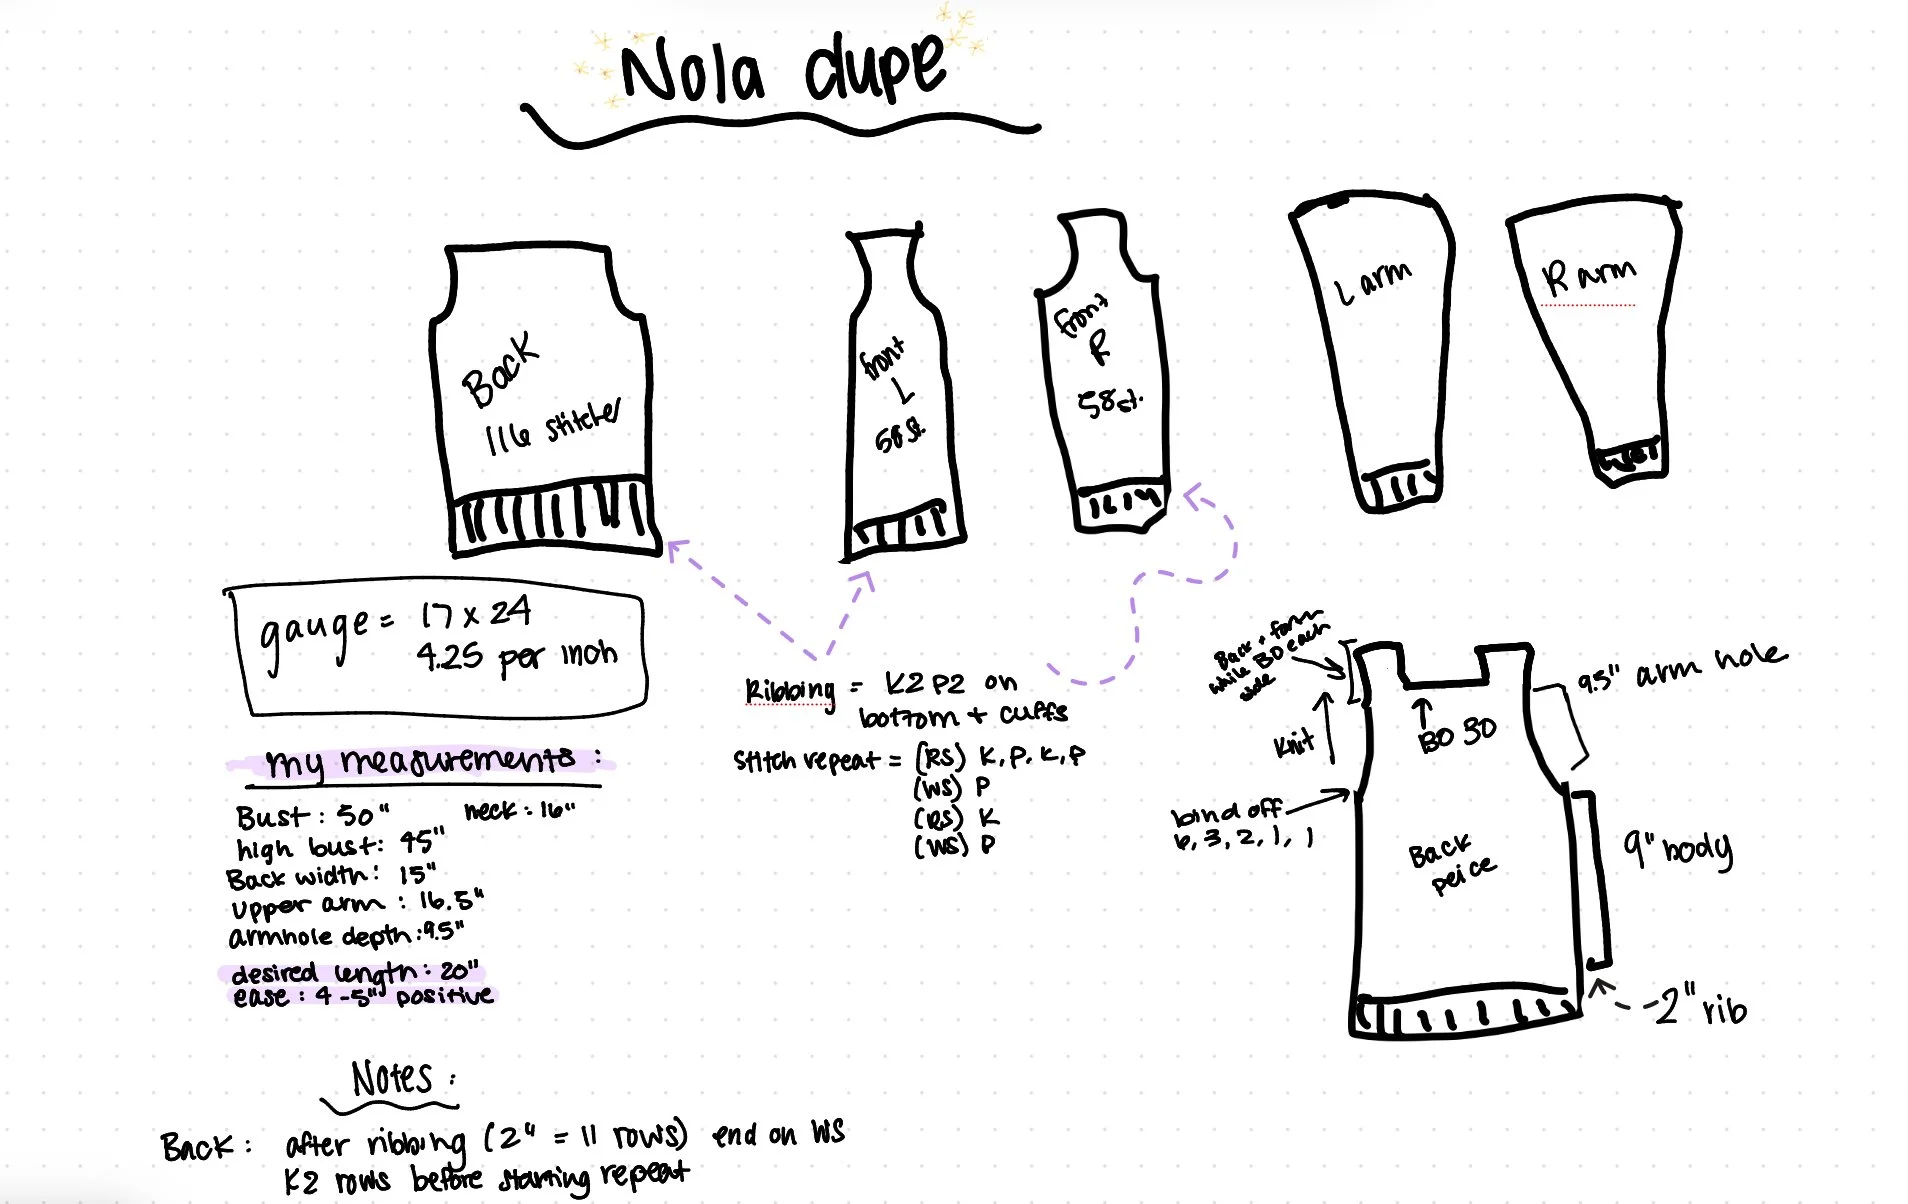 Nola dupe
Back
116 stitches
front
L
58 st.
front
R
58st.
L arm
R arm
gauge = 17 x 24
4.25 per inch
my measurements :
Bust : 50" neck : 16"
high bust: 45"
Back width: 15"
upper arm : 16.5"
armhole depth :9.5"
desired length : 20"
ease : 4 -5" positive
Ribbing = K2 P2 on
bottom + cuffs
Stitch repeat = (RS) K, P, K, P
(WS) P
(RS) K
(WS) P
Back + form
while BO each
side
Knit
BO 30
9.5" arm hole
bind off
6, 3, 2, 1, 1
Back
peice
9" body
2" rib
Notes :
Back : after ribbing (2" = 11 rows) end on WS
K2 rows before starting repeat